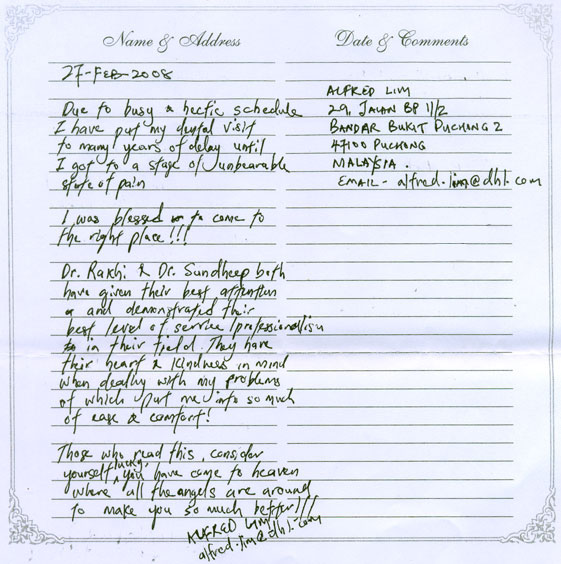 Name & Address
27-FEB-2008
Due to busy & hectic schedule
I have put my dental visit
to many years of delay until
I got to a stage of unbearable
state of pain
I was blessed to come to
the right place!!!
Dr. Rakhi & Dr. Sundheep both
have given their best attention
and demonstrated their
best level of service/professionalism
in their field. They have
their heart & kindness in mind
when dealing with my problems
of which put me into so much
of ease & comfort!
Those who read this, consider
yourself lucky, you have come to heaven
where all the angels are around
to make you so much better!!!
ALFRED LIM
alfred.lim@dhl.com
Date & Comments
ALFRED LIM
29, JALAN BP 11/2
BANDAR BUKIT PUCHONG 2
47100 PUCHONG
MALAYSIA.
EMAIL - alfred.lim@dhl.com